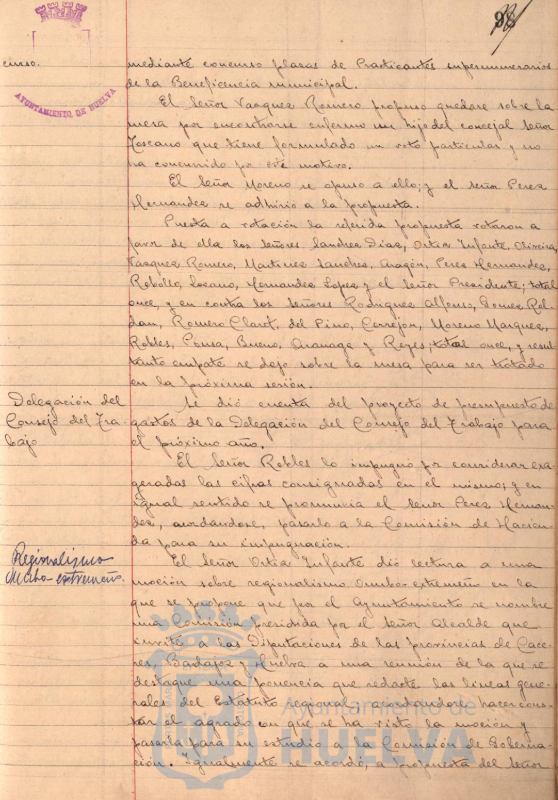 98
AYUNTAMIENTO DE HUELVA
curso.
mediante concurso plazas de Practicantes supernumerarios
de la Beneficencia municipal.
El Señor Vazquez Romero propuso quedase sobre la
mesa por encontrarse enfermo un hijo del concejal Señor
Toscano que tiene formulado un voto particular y no
ha concurrido por este motivo.
El Señor Moreno se opuso a ello; y el Señor Perez
Hernandez se adhirió a la propuesta.
Puesta a votación la referida propuesta votaron a
favor de ella los Señores Sanchez Diaz, Ortiz Infante, Oliveira,
Vazquez Romero, Martinez Sanchez, Aragón, Perez Hernandez,
Rebollo, Lozano, Hernandez Lopez y el Señor Presidente; total
once, y en contra los Señores Rodriguez Alfonso, Gomez Rol-
dan, Romero Claret, del Pino, Cerrejón, Moreno Marquez,
Robles, Ponsa, Bueno, y Reyes; total once, y resul-
tanto empate se dejo sobre la mesa para ser tratado
en la próxima sesión.
Delegación del
Consejo del Tra-
bajo
Se dió cuenta del proyecto de presupuesto de
gastos de la Delegación del Consejo del Trabajo para
el próximo año.
El Señor Robles lo impugnó por considerar exa-
geradas las cifras consignadas en el mismo; y en
igual sentido se pronuncia el Señor Perez Hernan-
dez, acordandose, pasarlo a la Comisión de Hacien-
da para su impugnación.
Regionalismo
Onubo-extremeño.
El Señor Ortiz Infante dió lectura a una
moción sobre regionalismo Onubo-extremeño en la
que se propone que por el Ayuntamiento se nombre
una Comisión presidida por el Señor Alcalde que
invite a las Diputaciones de las provincias de Cace-
res, Badajoz y Huelva a una reunión de la que se
destaque una ponencia que redacte las lineas gene-
rales del Estatuto regional, acordandose hacer cons-
tar el agrado con que se ha visto la moción y
pasarla para su estudio a la Comisión de Goberna-
ción. Igualmente se acordó, a propuesta del Señor
Ayuntamiento de
HUELVA